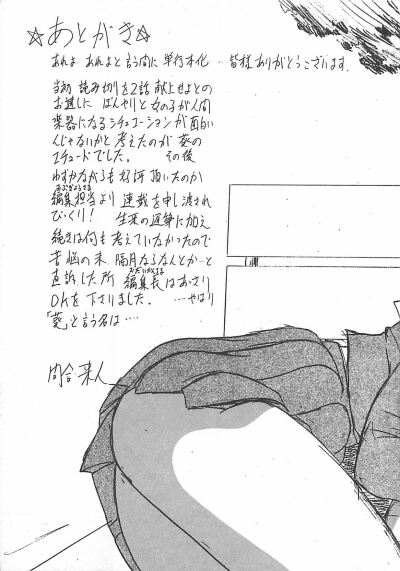 ☆あとがき☆
あれよ あれよと言う間に 単行本化 … 皆様ありがとうございます。
当初 読み切りを2話 献上せよとの
お達しに ぼんやりと 女の子が人間
楽器になるシチュエーションが面白い
んじゃないかと 考えたのが 葵の
エチュードでした。 その後
わずかながらも 好評 頂いたのか
編集担当より 連載を申し渡され
びっくり! 生来の遅筆に加え
続きは何も 考えていなかったので
苦悩の末、隔月ならなんとか…と
直訴した所 編集長はあっさり
OKを下さりました。 ……やはり
「葵」と言う名は‥‥
間合 来人